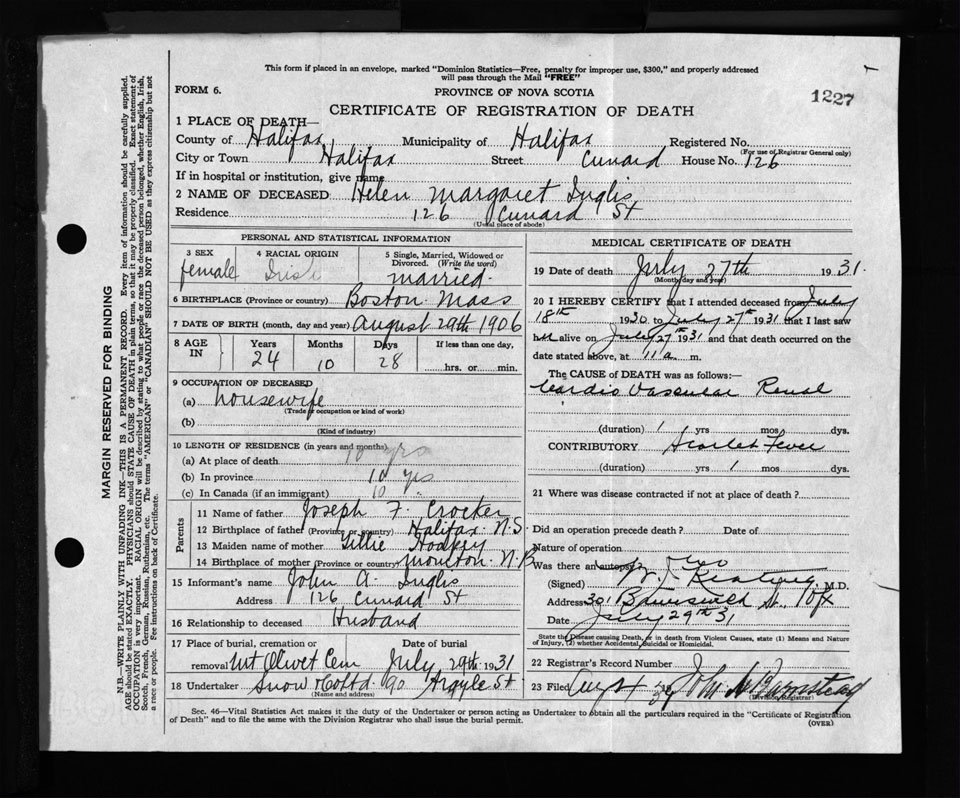 This form if placed in an envelope, marked "Dominion Statistics—Free, penalty for improper use, $300," and properly addressed
will pass through the Mail "FREE"
FORM 6.
PROVINCE OF NOVA SCOTIA
1227
CERTIFICATE OF REGISTRATION OF DEATH
1 PLACE OF DEATH—
County of Halifax Municipality of Halifax Registered No.
(For use of Registrar General only)
City or Town Halifax Street Cunard House No. 126
If in hospital or institution, give name
2 NAME OF DECEASED Helen Margaret Inglis
Residence 126 Cunard St
(Usual place of abode)
PERSONAL AND STATISTICAL INFORMATION
3 SEX female
4 RACIAL ORIGIN Irish
5 Single, Married, Widowed or Divorced. (Write the word) married
6 BIRTHPLACE (Province or country) Boston Mass
7 DATE OF BIRTH (month, day and year) August 29th 1906
8 AGE IN Years Months Days If less than one day,
24 10 28 hrs. or min.
9 OCCUPATION OF DECEASED
(a) housewife
(Trade occupation or kind of work)
(b)
(Kind of industry)
10 LENGTH OF RESIDENCE (in years and months)
(a) At place of death 10 yrs
(b) In province 10 yrs
(c) In Canada (if an immigrant) 10 "
Parents
11 Name of father Joseph F. Crocker
12 Birthplace of father (Province or country) Halifax N.S.
13 Maiden name of mother Tillie
14 Birthplace of mother (Province or country) Moncton N.B
15 Informant's name John A. Inglis
Address 126 Cunard St
16 Relationship to deceased Husband
17 Place of burial, cremation or Date of burial
removal Mt Olivet Cem July 29th 1931
18 Undertaker Snow & Co Ltd 90 Argyle St
(Name and address)
MEDICAL CERTIFICATE OF DEATH
19 Date of death July 27th 1931.
(Month day and year)
20 I HEREBY CERTIFY that I attended deceased from July
18th 1930 to July 27th 1931 that I last saw
her alive on July 27th 1931 and that death occurred on the
date stated above, at 11 a. m.
The CAUSE OF DEATH was as follows:—
Cardio Vascular Renal
(duration) 1 yrs mos dys.
CONTRIBUTORY Scarlet Fever
(duration) yrs 1 mos dys.
21 Where was disease contracted if not at place of death?
Did an operation precede death? Date of
Nature of operation
Was there an autopsy? no
(Signed) Keating M.D.
Address 301 Brunswick St.
Date July 29th 31
State the Disease causing Death, or in death from Violent Causes, state (1) Means and Nature
of Injury, (2) whether Accidental, Suicidal or Homicidal.
22 Registrar's Record Number
23 Filed John A Barnstead
(Division Registrar)
Sec. 46—Vital Statistics Act makes it the duty of the Undertaker or person acting as Undertaker to obtain all the particulars required in the "Certificate of Registration
of Death" and to file the same with the Division Registrar who shall issue the burial permit.
(OVER)
MARGIN RESERVED FOR BINDING
N.B.—WRITE PLAINLY WITH UNFADING INK—THIS IS A PERMANENT RECORD. Every item of information should be carefully supplied.
AGE should be stated EXACTLY. PHYSICIANS should STATE CAUSE OF DEATH in plain terms, so that it may be properly classified. Exact statement of
OCCUPATION is very important. RACIAL ORIGIN will be described by stating to what people or race the deceased person belonged, whether English, Irish,
Scotch, French, German, Russian, Ruthenian, etc. The terms "AMERICAN" or "CANADIAN" SHOULD NOT BE USED as they express citizenship but not
a race or people. See instructions on back of Certificate.